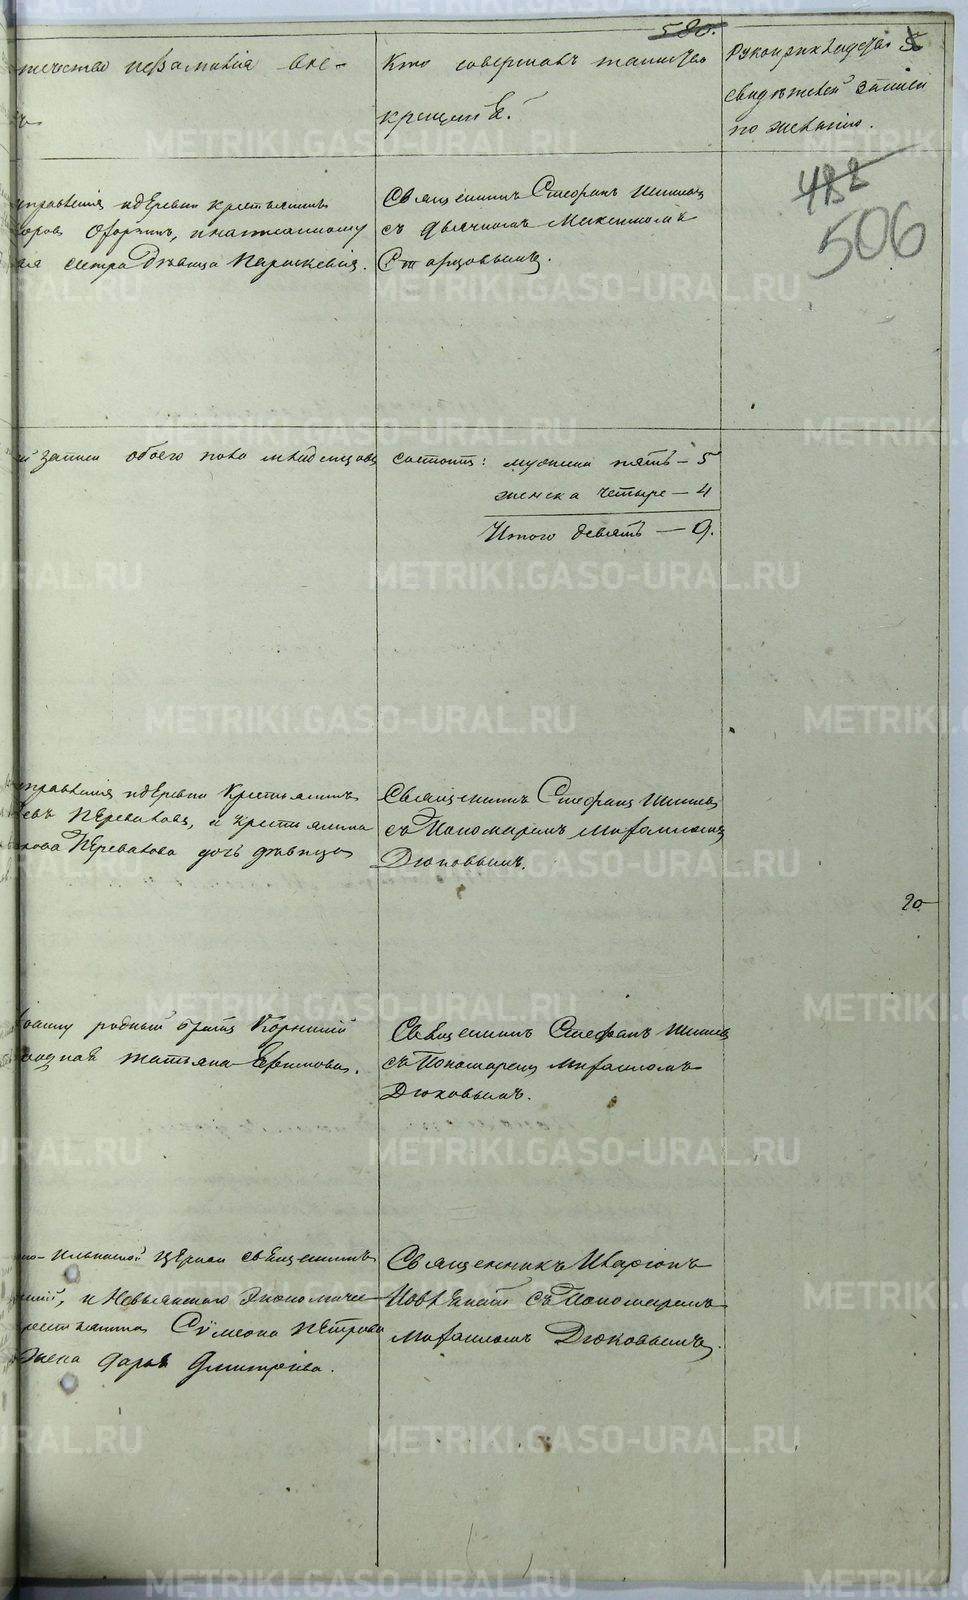 580.
отчество и фамилия вос-
Кто совершалъ таинство
крещенія.
Рукоприкладство
свидѣтелей записи
по желанію.
482
506
управленія и деревни крестьянинъ
сестра Дѣвица Параскевія.
Священникъ Стефанъ Шишевъ
съ дьячкомъ Максимомъ
Старцовымъ.
записи обоего пола младенцовъ состоитъ: мужеска пять — 5
женска четыре — 4
Итого девять — 9.
управленія и деревни Крестьянинъ
Переваловъ, и крестьянина
Перевалова дочь дѣвица
Священникъ Стефанъ Шишевъ
съ Пономаремъ Михаиломъ
Дюковымъ.
20
родный братъ Корнилій
Татьяна Ефимова.
Священникъ Стефанъ Шишевъ
съ Пономаремъ Михаиломъ
Дюковымъ.
Ильинской Церкви священникъ
и Невьянского Экономиче-
Сѵмеона Петрова
жена Дарья Дмитріева.
Священникъ Иларіонъ
съ Пономаремъ
Михаиломъ Дюковымъ.
METRIKI.GASO-URAL.RU